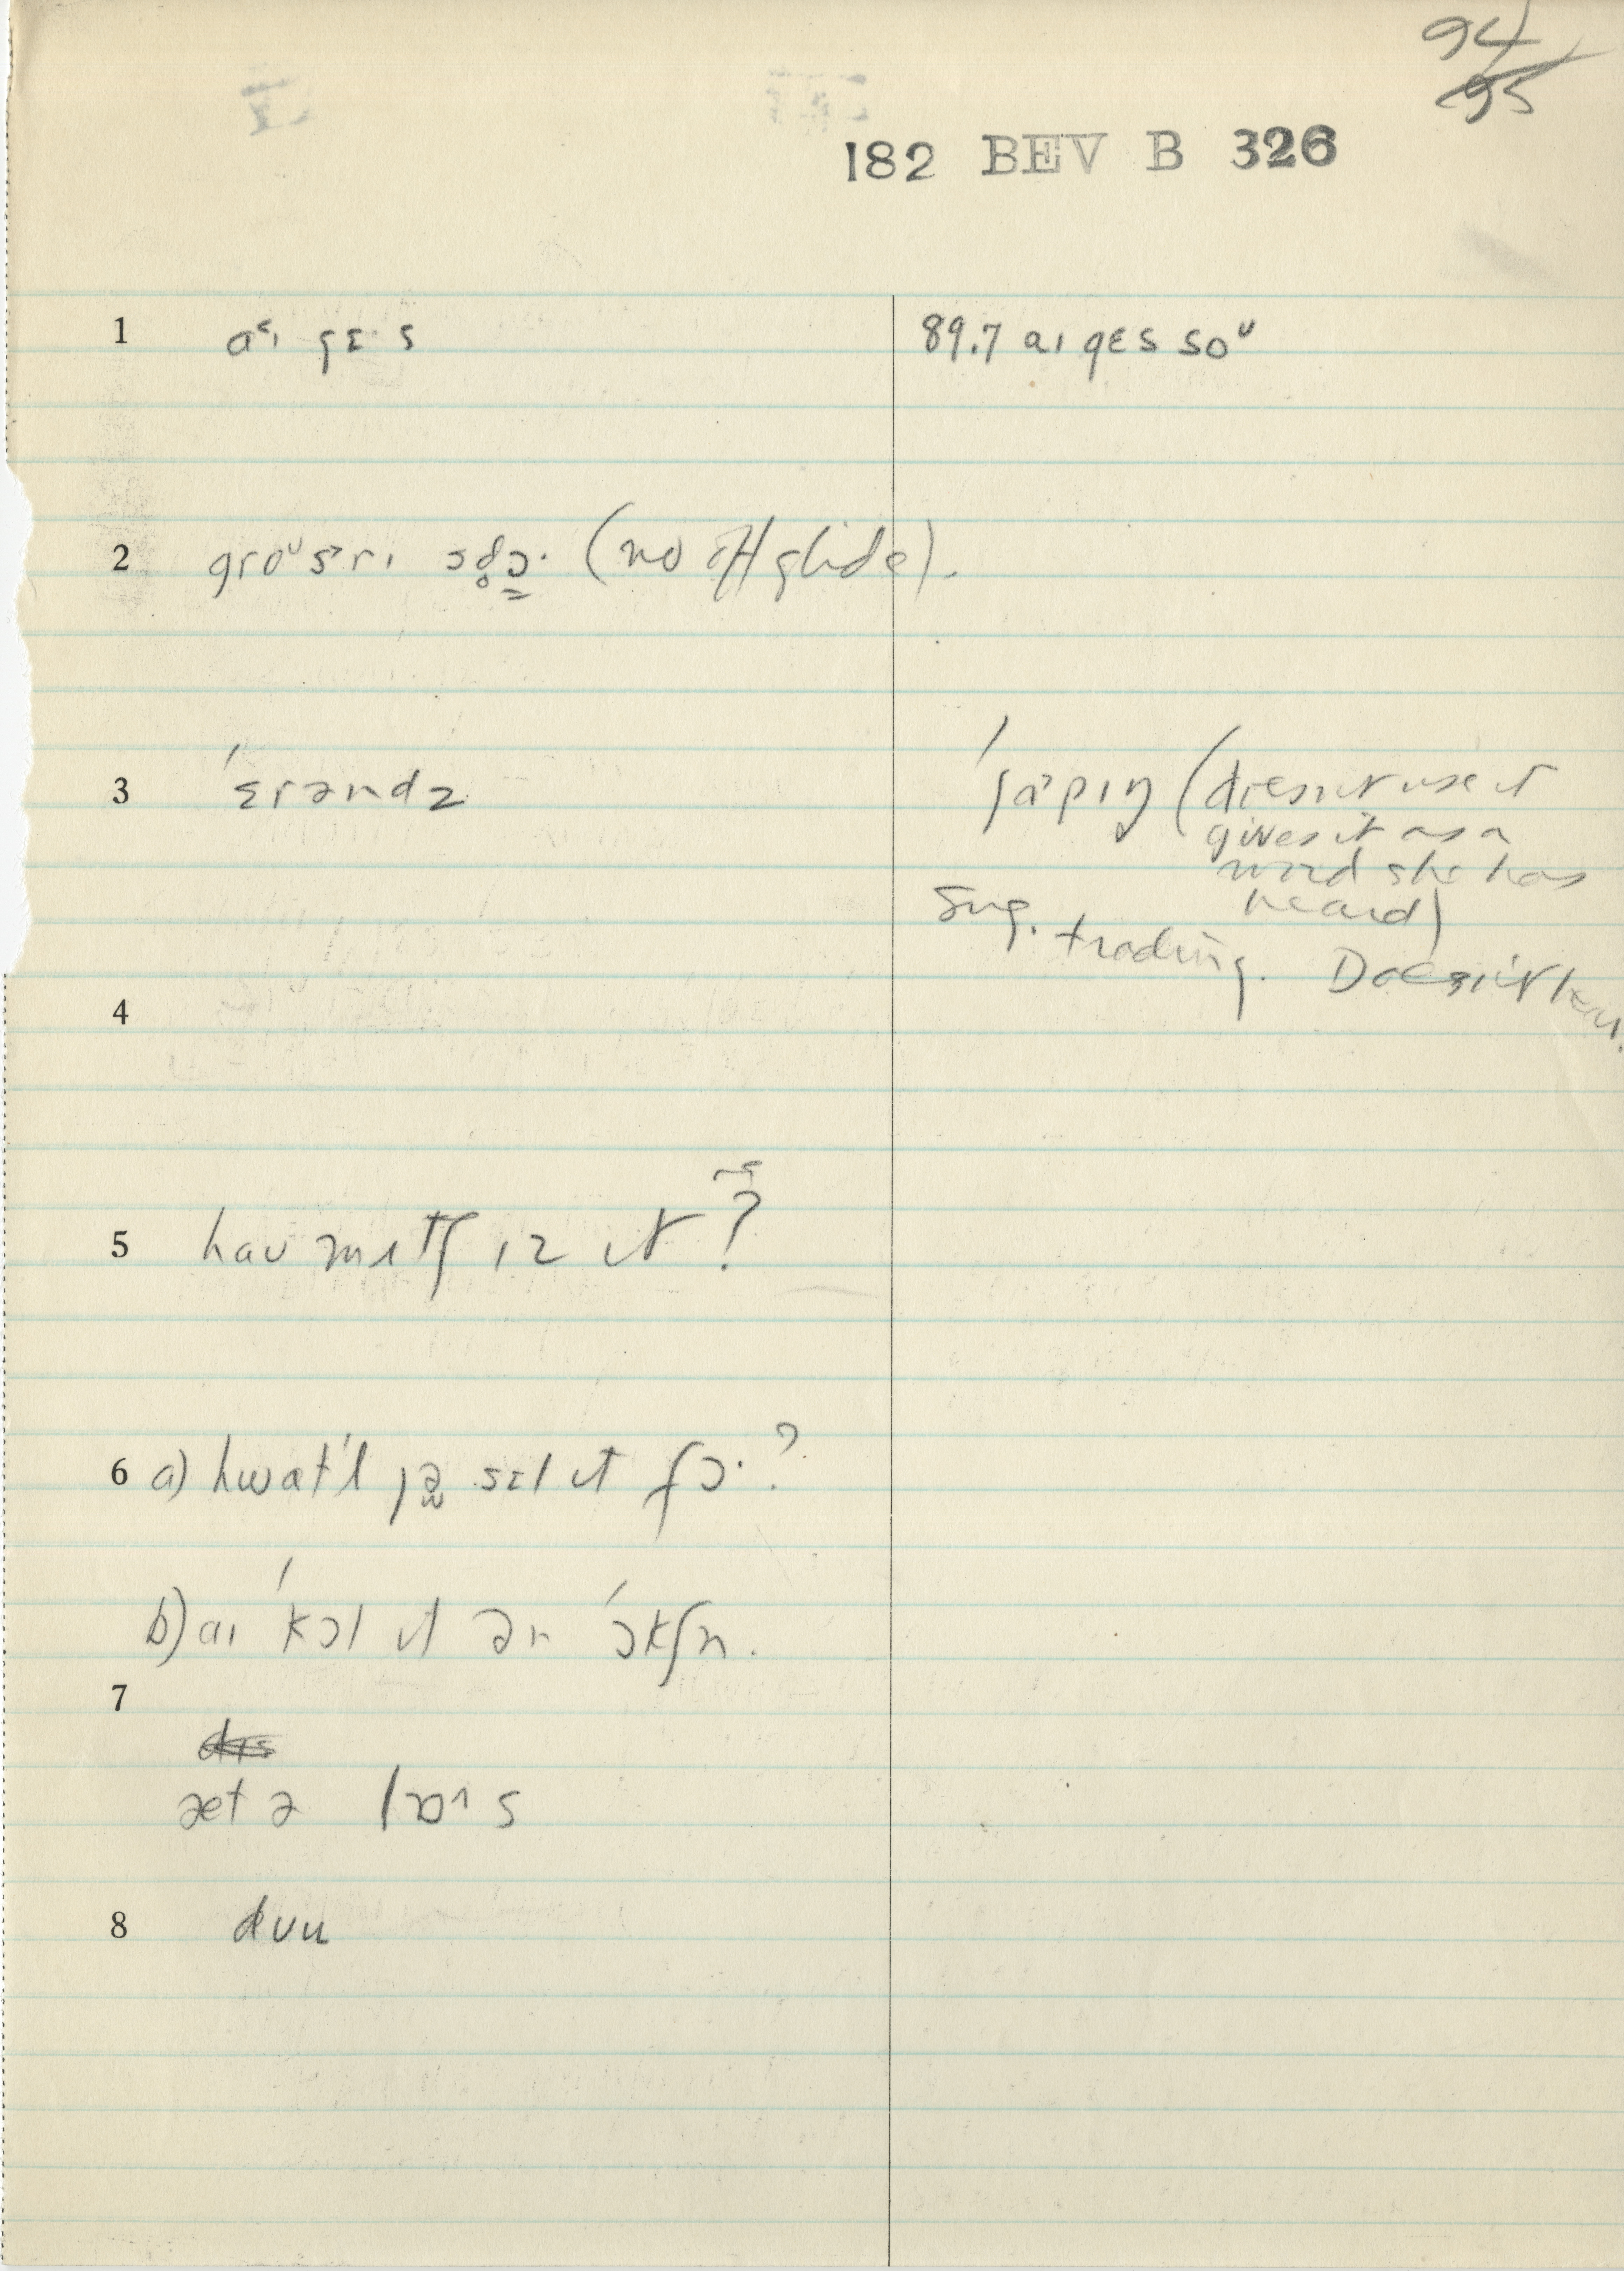 94
95
182 BEV B 326
1 aˤɪ gɛ·s
89.7 aɪ gɛs soᴜ
2 groᴜsᵊrɪ (no off glide).
3 ˈɛrəndz
ˈʃapɪŋ (doesn't use it
gives it as a
word she has
heard)
Sug. trading. Doesn't hear.
4
5 haʊ mɪtʃ ɪz ɪt?
6 a) hwat'l jə sɛl ɪt fɔ·?
b) aɪ ˈkɔl ɪt ən ˈɔkʃn.
7
æt ə lɒˑs
8 dʊu